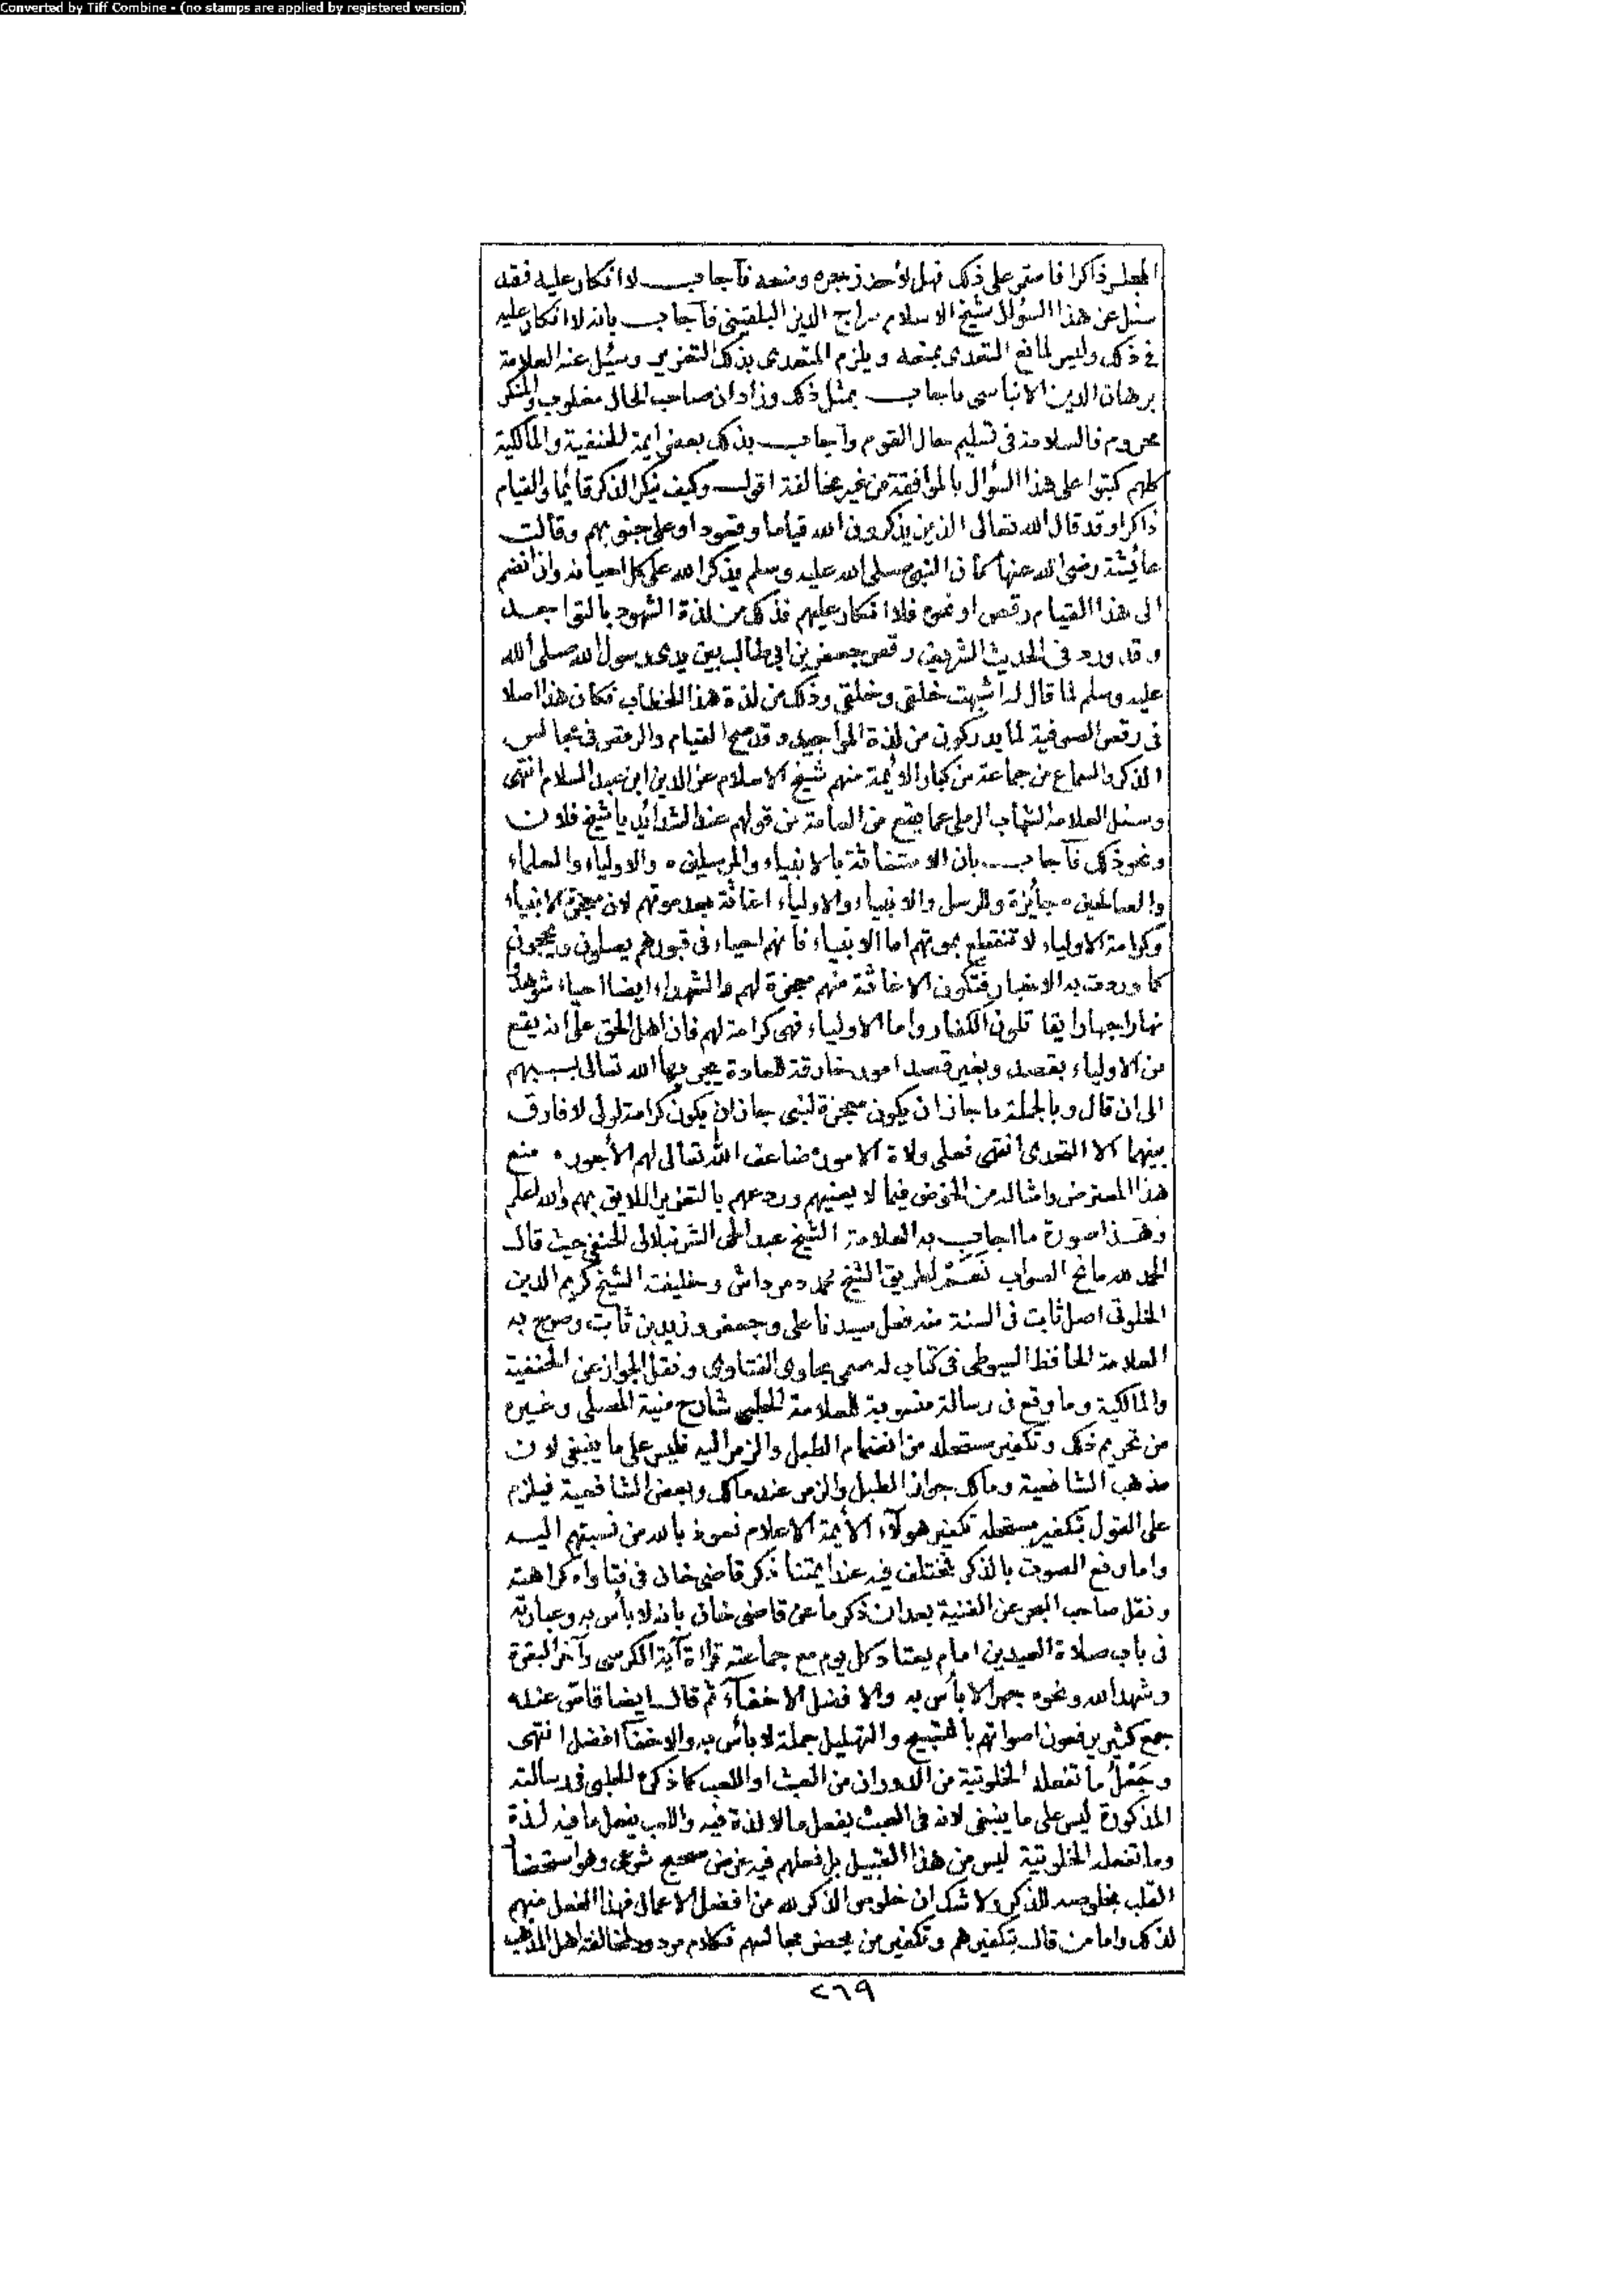 Converted by Tiff Combine - (no stamps are applied by registered version)
المجلس ذاكرا فاستمر على ذلك فهل لأحد زجره ومنعه فآجاب لا انكار عليه فقد
سئل عن هذا السؤال شيخ الاسلام سراج الدين البلقيني فآجاب بانه لا انكار عليه
في ذلك وليس لمانع التعدى بمنعه ويلزم المتعدى بذلك التعزير وسئيل عنه العلامة
برهان الدين الانباسى فاجاب بمثل ذلك وزاد ان صاحب الحال مغلوب والمنكر
محروم فالسلامة فى تسليم حال القوم وآجاب بذلك بعض ايمة الحنفية والمالكية
كلهم كتبوا على هذا السؤال بالموافقة من غير مخالفة اقول وكيف ينكر الذكر قائما والقيام
ذاكرا وقد قال الله تعالى الذين يذكرون الله قياما وقعودا وعلى جنوبهم وقالت
عائيشة رضى الله عنها كان النبي صلى الله عليه وسلم يذكر الله على كل احيانه وان انضم
الى هذا القيام رقص او نحوه فلا انكار عليهم فذلك من لذة الشهود بالتواجد
وقد ورد فى الحديث الشريف رقص جعفر بن ابي طالب بين يدى رسول الله صلى الله
عليه وسلم لما قال له اشبهت خلقى وخلقى وذلك من لذة هذا الخطاب فكان هذا اصلا
فى رقص الصوفية لما يدركون من لذة المواجيد وقد صح القيام والرقص فى مجالس
الذكر والسماع عن جماعة من كبار الايمة منهم شيخ الاسلام عز الدين ابن عبد السلام انتهى
وسئل العلامة الشهاب الرملى عما يقع من العامة من قولهم عند الشدائيد يا شيخ فلان
ونحو ذلك فآجاب بان الاستغاثة بالانبياء والمرسلين ٠ والاولياء والعلماء
والصالحين ٠ جائيزة وللرسل والانبياء والاولياء اغاثة بعد موتهم لان معجزة الانبياء
وكرامة الاولياء لا تنقطع بموتهم اما الانبياء فانهم احياء فى قبورهم يصلون ويحجون
كما وردت به الاخبار فتكون الاغاثة منهم معجزة لهم والشهداء ايضا احياء شوهدوا
نهارا جهارا يقاتلون الكفار واما الاولياء فهى كرامة لهم فان اهل الحق على انه يقع
من الاولياء بقصد وبغير قصد امور خارقة للعادة يجريها الله تعالى بسببهم
الى ان قال وبالجملة ما جاز ان يكون معجزة لنبى جاز ان يكون كرامة لولى لا فارق
بينهما الا التحدى انتهى فعلى ولاة الامور ضاعف الله تعالى لهم الأجور ٠ منع
هذا المعترض وامثاله من الخوض فيما لا يعنيهم وردعهم بالتعزير اللايق بهم والله اعلم
وهذا صورة ما اجاب به العلامة الشيخ عبد الحى الشرنبلالى الحنفى حيث قال
الحمد لله مانح الصواب نعم لطريق الشيخ محمد دمرداش وخليفته الشيخ كريم الدين
الخلوتى اصل ثابت فى السنة منه فعل سيدنا على وجعفر وزيد بن ثابت وصرح به
العلامة الحافظ السيوطى فى كتاب له مسمى بحاوى الفتاوى ونقل الجواز عن الحنفية
والمالكية وما وقع فى رسالة منسوبة للعلامة الحلبى شارح منية المصلى وغيره
من تحريم ذلك وتكفير مستحله من انضمام الطبل والزمر اليه فليس على ما ينبغى لان
مذهب الشافعية ومالك جواز الطبل والزمر عند مالك وبعض الشافعية فيلزم
على القول بتكفير مستحله تكفير هولآء الأيمة الاعلام نعوذ بالله من نسبتهم اليه
واما رفع الصوت بالذكر فمختلف فيه عند ايمتنا ذكر قاضى خان فى فتاواه كراهته
ونقل صاحب البحر عن القنية بعد ان ذكر ما عن قاضى خان بانه لا بأس به وعبارته
فى باب صلاة العيدين امام يعتاد كل يوم مع جماعته قراة آية الكرسى وآخر البقرة
وشهد الله ونحوه جهرا لا بأس به والافضل الاخفآء ثم قال ايضا قاض عنده
جمع كثير يرفعون اصواتهم بالتسبيح والتهليل جملة لا بأس به والاخفا افضل انتهى
وجعل ما تفعله الخلوتية من الدوران من العبث او اللعب كما ذكره الحلبى فى رسالته
المذكورة ليس على ما ينبغى لانه فى العبث يفعل ما لا لذة فيه واللعب يفعل ما فيه لذة
وما تفعله الخلوتية ليس من هذا القبيل بل فعلهم فيه غرض صحيح شرعى وهو استحضار
القلب بخلوصه للذكر ولا شك ان خلوص الذكر لله من افضل الاعمال فهذا الفعل منهم
لذلك واما من قال بتكفيرهم وتكفير من يحضر مجالسهم فكلام مردود لمخالفة اهل المذهب
٢٦٩